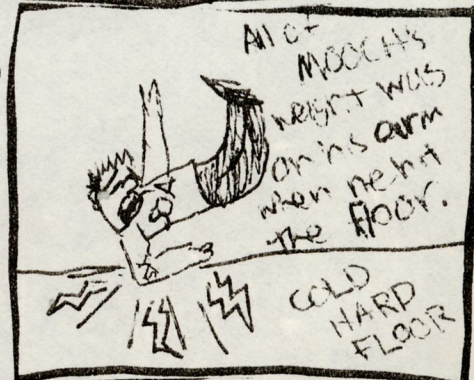 All of
MOOCH's
weight was
on his arm
when he hit
the floor.
COLD
HARD
FLOOR